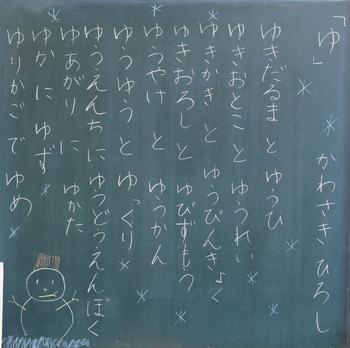 「ゆ」 かわさきひろし
ゆきだるまと ゆうひ
ゆきおとこと ゆうれい
ゆきかきと ゆうびんきょく
ゆきおろしと ゆびずもう
ゆうやけと ゆうかん
ゆうゆうと ゆっくり
ゆうえんちに ゆうどうえんぼく
ゆあがりに ゆかた
ゆかに ゆず
ゆりかごで ゆめ